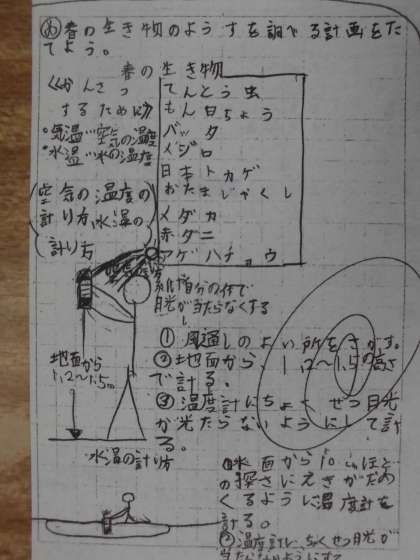 め 春の生き物のようすを調べる計画をた
てよう。
春の生き物
くかんさつ
するために
てんとう虫
もん白ちょう
バッタ
メジロ
日本トカゲ
おたまじゃくし
メダカ
赤ダニ
アゲハチョウ
・気温…空気の温度
・水温…水の温度
空気の温度の
計り方、水温の
計り方
自分の体で
日光が当たらなくする
地面から
1.2〜1.5m
①風通しのよい所をさがす。
②地面から、1.2〜1.5の高さ
で計る。
③温度計にちょくせつ日光
が光たらないようにして計
る。
水温の計り方
①水面から10cmほど
の深さにえきだめ
がくるように温度計を
計る。
②温度計にちょくせつ日光が